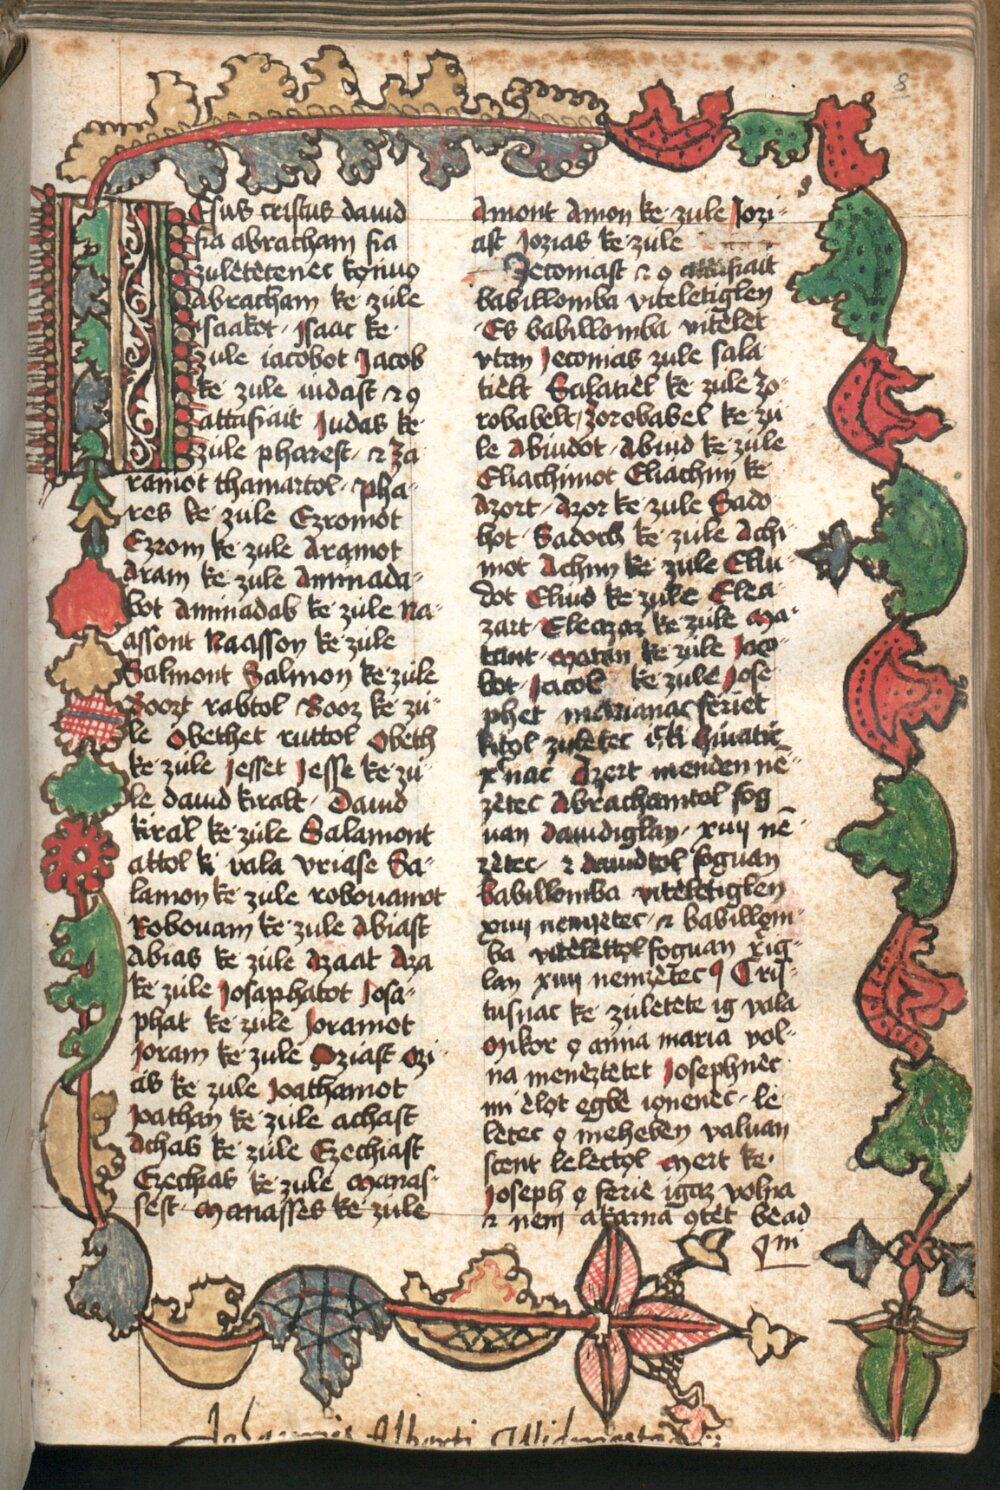 8
Esus cristus dauid
fia abracham fia
zulètètenèc kǫnuǫ
Abracham ke· zùle
isaakot· Isaac ke·
zùle iacobot Jacob
ke· zùle iudast ⁊ ǫ
attafiait Judas ke·
zùle pharest· ⁊ Za
ramot thamartol· pha-
res ke· zùle Ezromot
Ezrom ke· zùle Aramot
Aram ke· zùle Aminada-
bot Aminadab ke· zùle Na-
assont Naasson ke· zùle
Salmont Salmon ke· zùle
Boozt rabtol Booz ke· zù-
le Obethet ruttol Obeth
ke· zùle Jesset Jesse ke· zù
le dauid kiralt· Dauid
kiral ke· zùle Salamont
attol ki vala vriase Sa-
lamon ke· zùle robouamot
Robouam ke· zùle Abiast
Abias ke· zùle Azaat Aza
ke· zùle Josaphatot Josa-
phat ke· zùle Joramot
Joram ke· zùle Oziast Ozi-
as ke· zùle Joathamot
Joathan ke· zùle achast
Achas ke· zùle Ezechiast
Ezechias ke· zùle Manas-
sest· Manasses ke· zùle
Amont Amon ke· zùle Jozi-
ast Jozias ke· zùle
Jecomast ⁊ ǫ attafiait
babillomba viteletiglen
·Es babillomba vitèlèt
vtan Jecomas zùle sala
tièlt Salatièl ke· zùle Zo-
robabelt· Zorobabel ke· zù
le Abiudot· Abiud ke· zùle
Eliachimot Eliachim ke·
Azort· Azor ke· zùle Sado
hot· Sadoch ke· zùle Achi
mot Achim ke· zùle Eliu-
dot Eliud ke· zùle Elea-
zart· Eleazar ke· zùle Ma-
tant· Matan ke· zùle Jaco
bot· Jacob ke· zùle Jose
phet marianac feriet
kitǫl zùlètec ihc hiuatic
xp̄nac Azert menden nē-
zètec Abrachamtol fog
uan dauidiglan· xiiij nē-
zètec· ⁊ dauidtol foguan
babillomba vitèletiglen
xiiij nemzètec· ⁊ babillom-
ba vitèlèttol foguan xp̄ig-
lan xiiij nemzètec Cris-
tusnac ke· zùletete ig vala
Mikor ǫ aṅńa maria vol-
na menèztètet Josephnèc·
mi èlǫt egbè ionenèc· le-
lètec ǫ mèhèben valuan
scent lèlèctǫl Mert ke·
Joseph ǫ ferie igaz volna
⁊ nem akarna ǫtèt bèad
Johannis Alberti Widmestadij